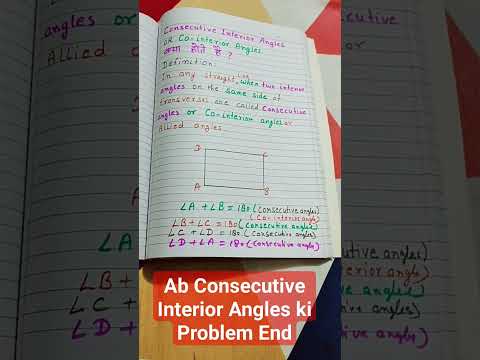 Consecutive Interior Angles
OR Co-interior Angles
क्या होते हैं ?
Definition:
In any straight line when two interior
angles on the same side of
transversal are called consecutive
angles or Co-interior angles or
Allied angles.
D C
A B
∠A + ∠B = 180 (consecutive angles)
(Co-interior angle)
∠B + ∠C = 180 (consecutive angles)
∠C + ∠D = 180 (consecutive angles)
∠D + ∠A = 180 (consecutive angle)
angles or Co-
Allied ang
Ab Consecutive
Interior Angles ki
Problem End